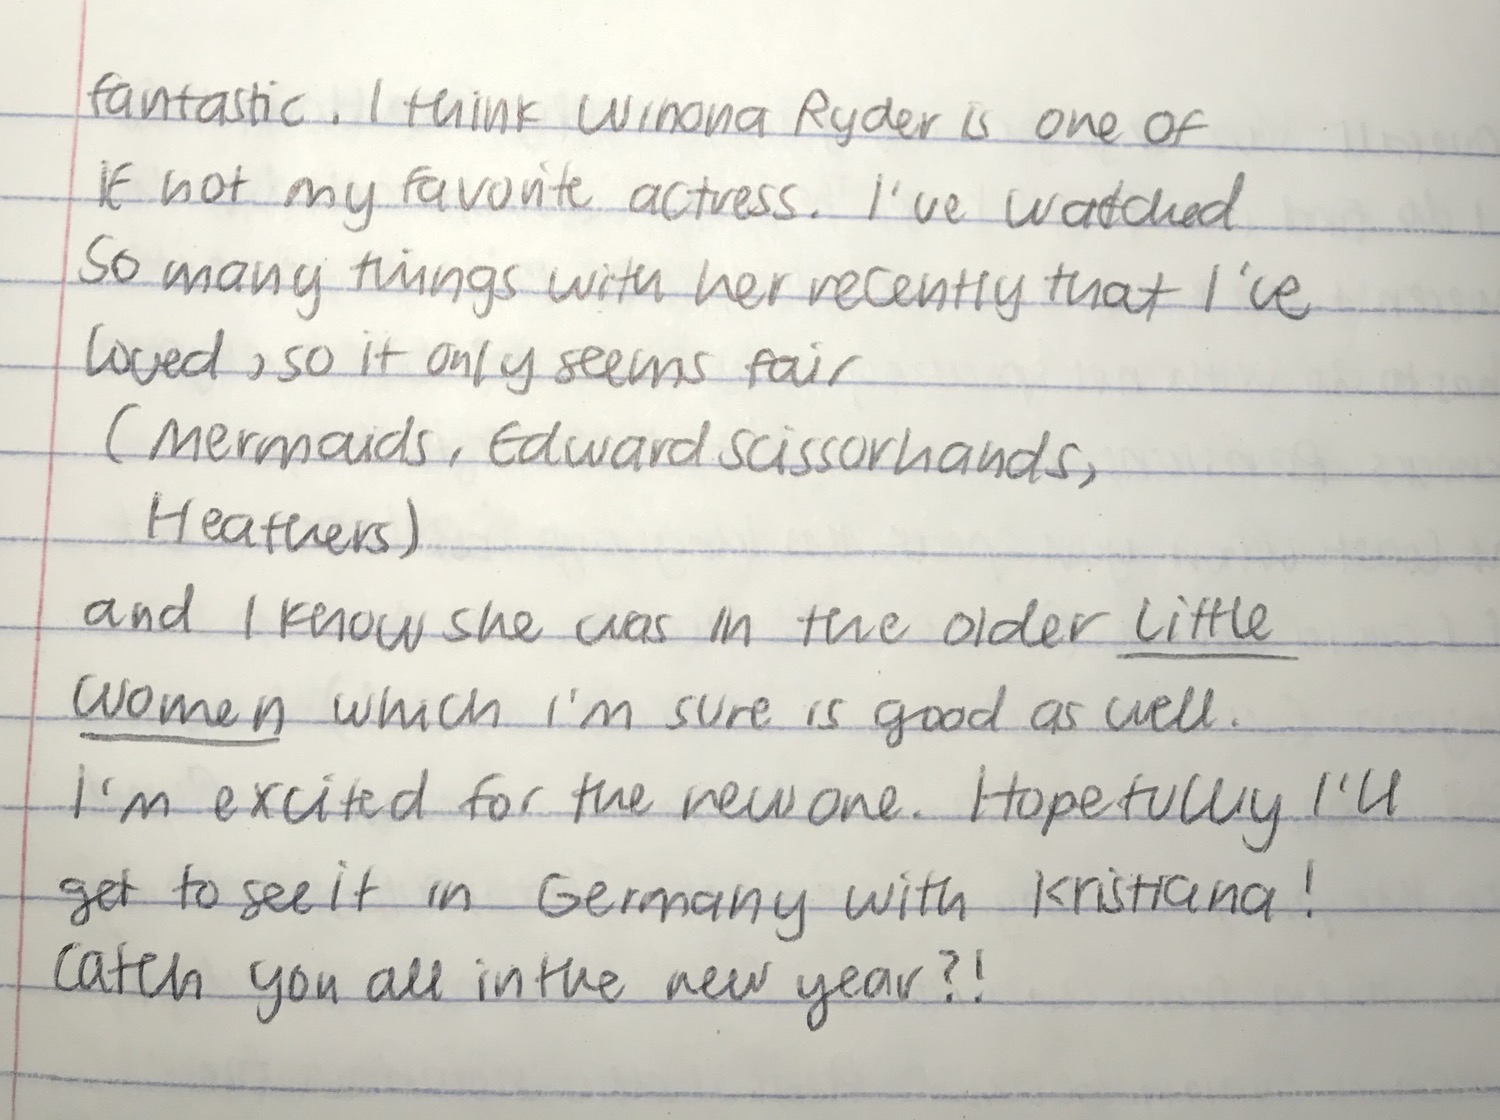 fantastic. I think Winona Ryder is one of
if not my favorite actress. I've watched
So many things with her recently that I've
loved, so it only seems fair
(Mermaids, Edward Scissorhands,
Heathers)
and I know she was in the older Little
Women which I'm sure is good as well.
I'm excited for the new one. Hopefully I'll
get to see it in Germany with Kristiana!
Catch you all in the new year?!